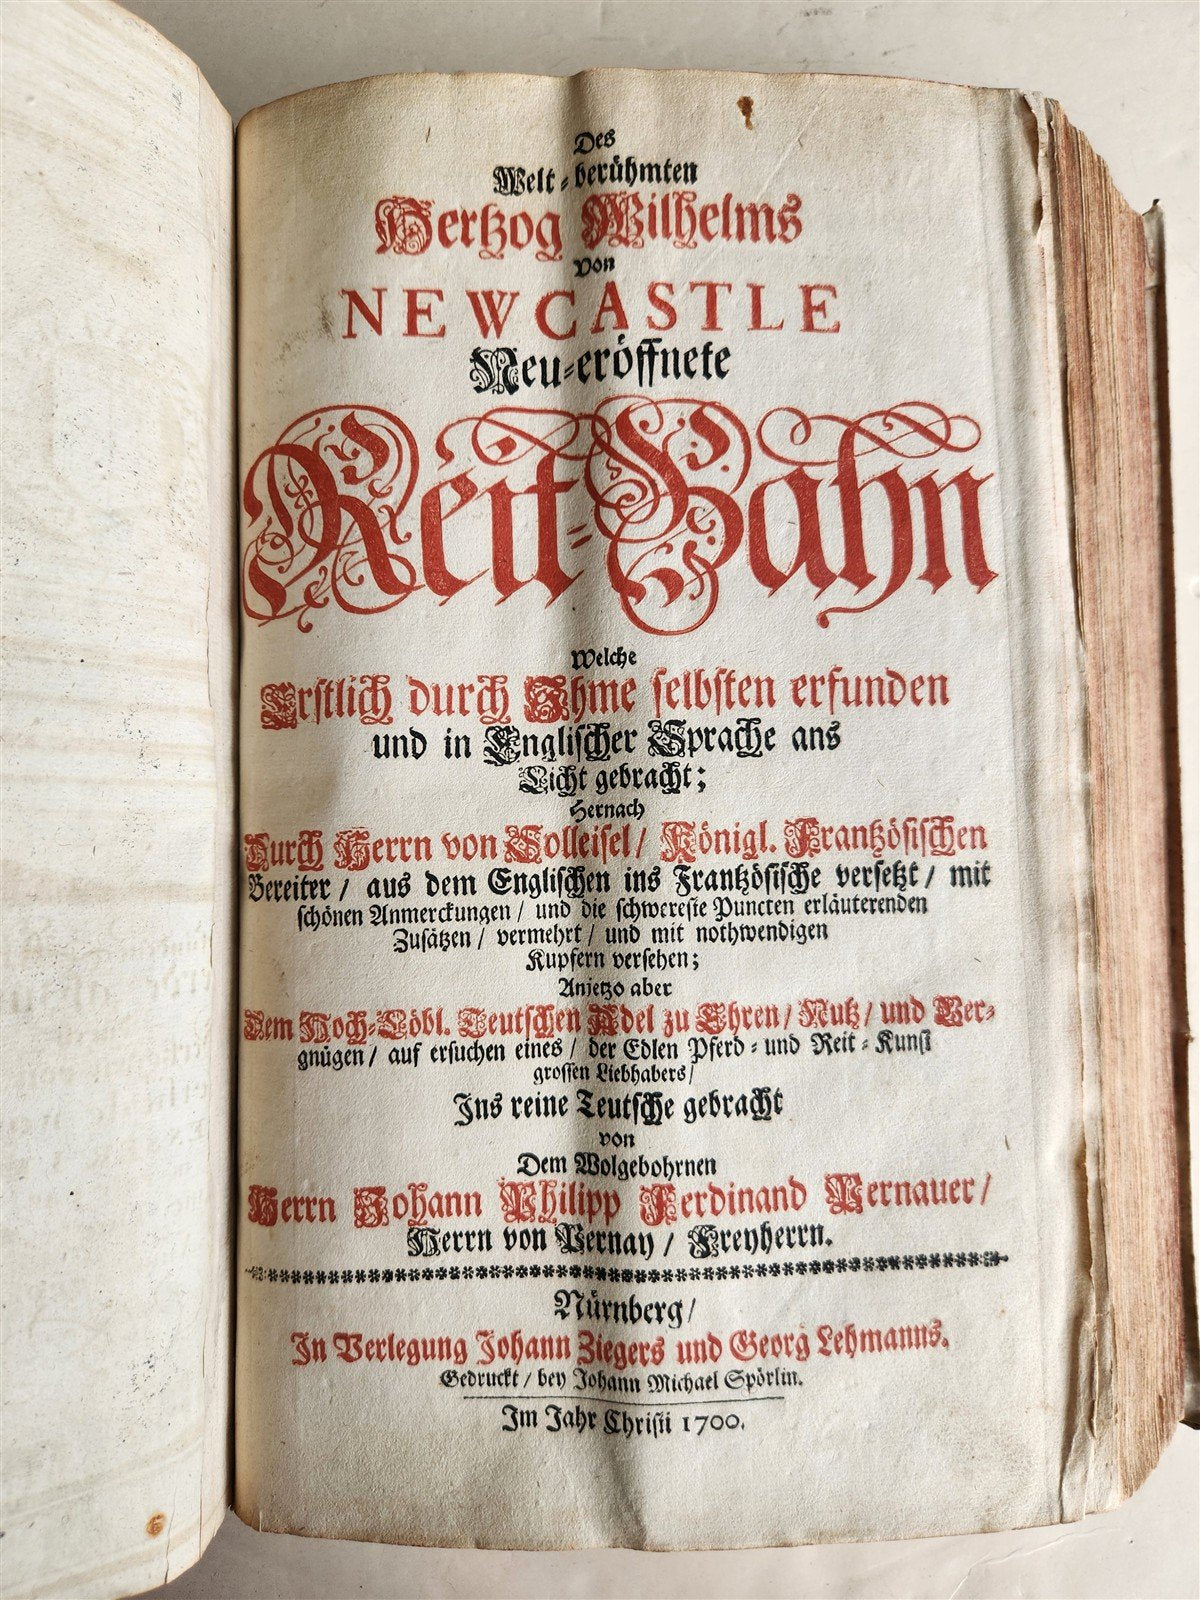 Des
Welt-berühmten
Hertzog Wilhelms
von
NEWCASTLE
Neu-eröffnete
Reit-Bahn
Welche
Erstlich durch Ihme selbsten erfunden
und in Englischer Sprache ans
Licht gebracht;
Hernach
Durch Herrn von Solleisel/ Königl. Frantzösischen
Bereiter/ aus dem Englischen ins Frantzösische versetzt/ mit
schönen Anmerckungen/ und die schwereste Puncten erläuterenden
Zusätzen/ vermehrt/ und mit nothwendigen
Kupfern versehen;
Anjetzo aber
Dem Hoch-Löbl. Teutschen Adel zu Ehren/ Nutz/ und Ver-
gnügen/ auf ersuchen eines/ der Edlen Pferd- und Reit-Kunst
grossen Liebhabers/
Ins reine Teutsche gebracht
von
Dem Wolgebohrnen
Herrn Johann Philipp Ferdinand Pernauer/
Herrn von Pernay/ Freyherrn.
Nürnberg/
In Verlegung Johann Ziegers und Georg Lehmanns.
Gedruckt/ bey Johann Michael Spörlin.
Im Jahr Christi 1700.